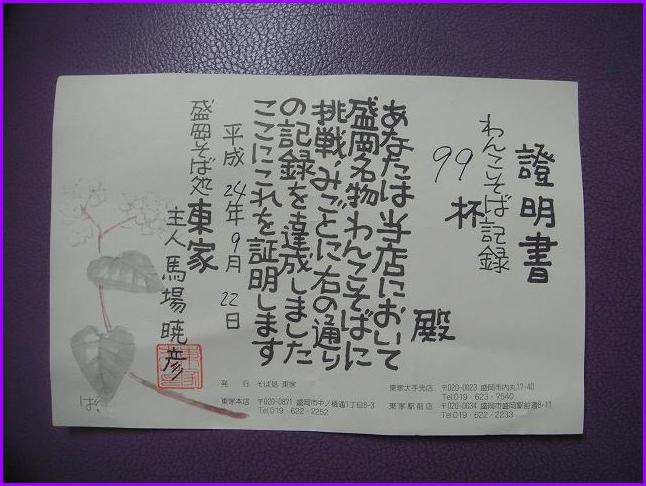 證明書
わんこそば記録
99杯
殿
あなたは当店において
盛岡名物わんこそばに
挑戦、みごとに右の通り
の記録を達成しました
ここにこれを証明します
平成24年9月22日
盛岡そば処 東家
主人 馬場暁彦
ば、
発 行 そば処 東家
東家本店 〒020-0871 盛岡市中ノ橋通1丁目8-3
Tel.019・622・2252
東家大手先店 〒020-0023 盛岡市内丸17-40
Tel.019・623・7540
東家駅前店 〒020-0034 盛岡市盛岡駅前通8-11
Tel.019・622・2233